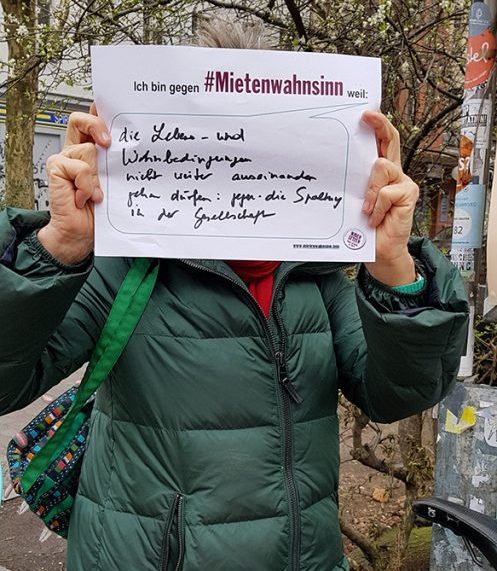 Ich bin gegen #Mietenwahnsinn weil:
die Lebens- und
Wohnbedingungen
nicht weiter auseinander
gehen dürfen: gegen die Spaltung
in der Gesellschaft
www.mietenwahnsinn.info